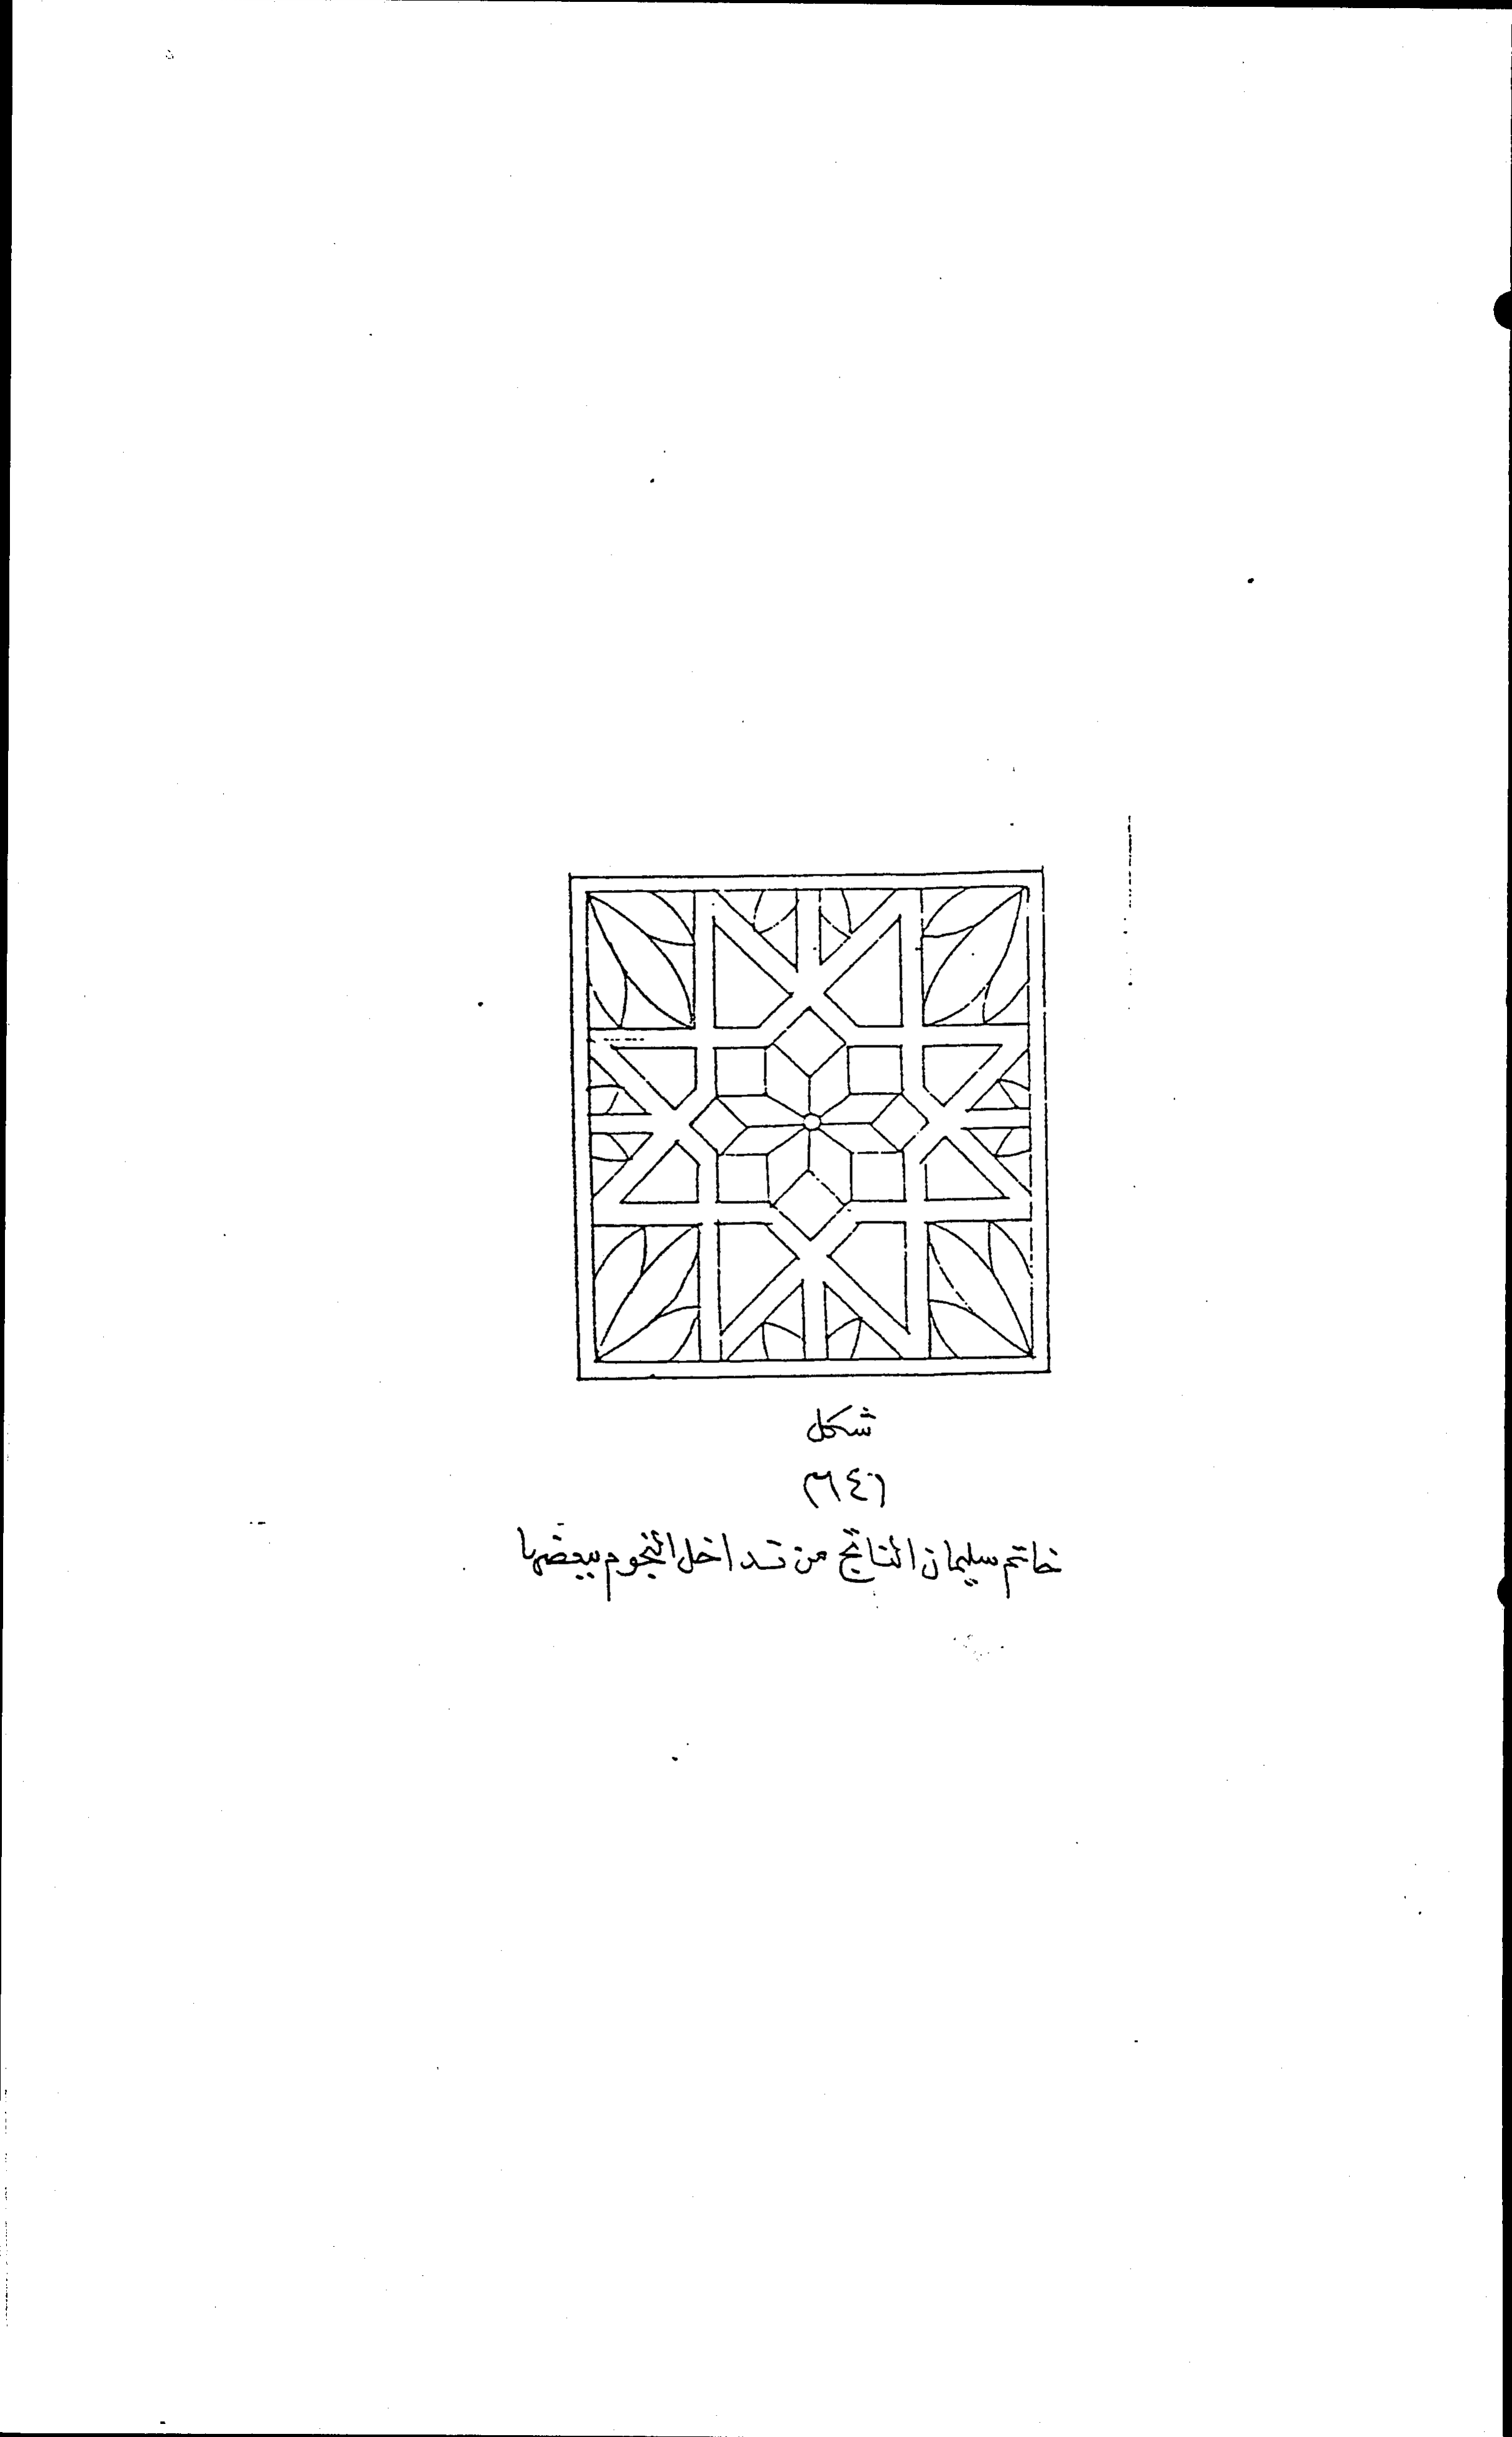 شكل
(٦٤٦)
خاتم سليمان الناتج من تداخل النجوم ببعضها